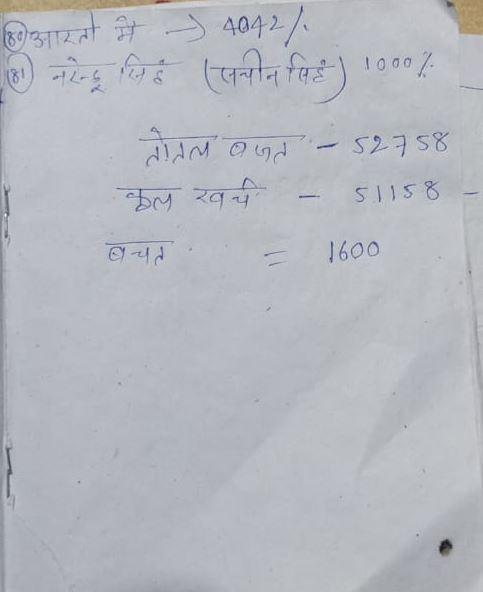 (80) आरती में → 4042/.
(81) नरेन्द्र सिहं (सचीन सिहं) 1000/.
तोतल बजत - 52758
कुल खर्च - 51158 -
बचत = 1600